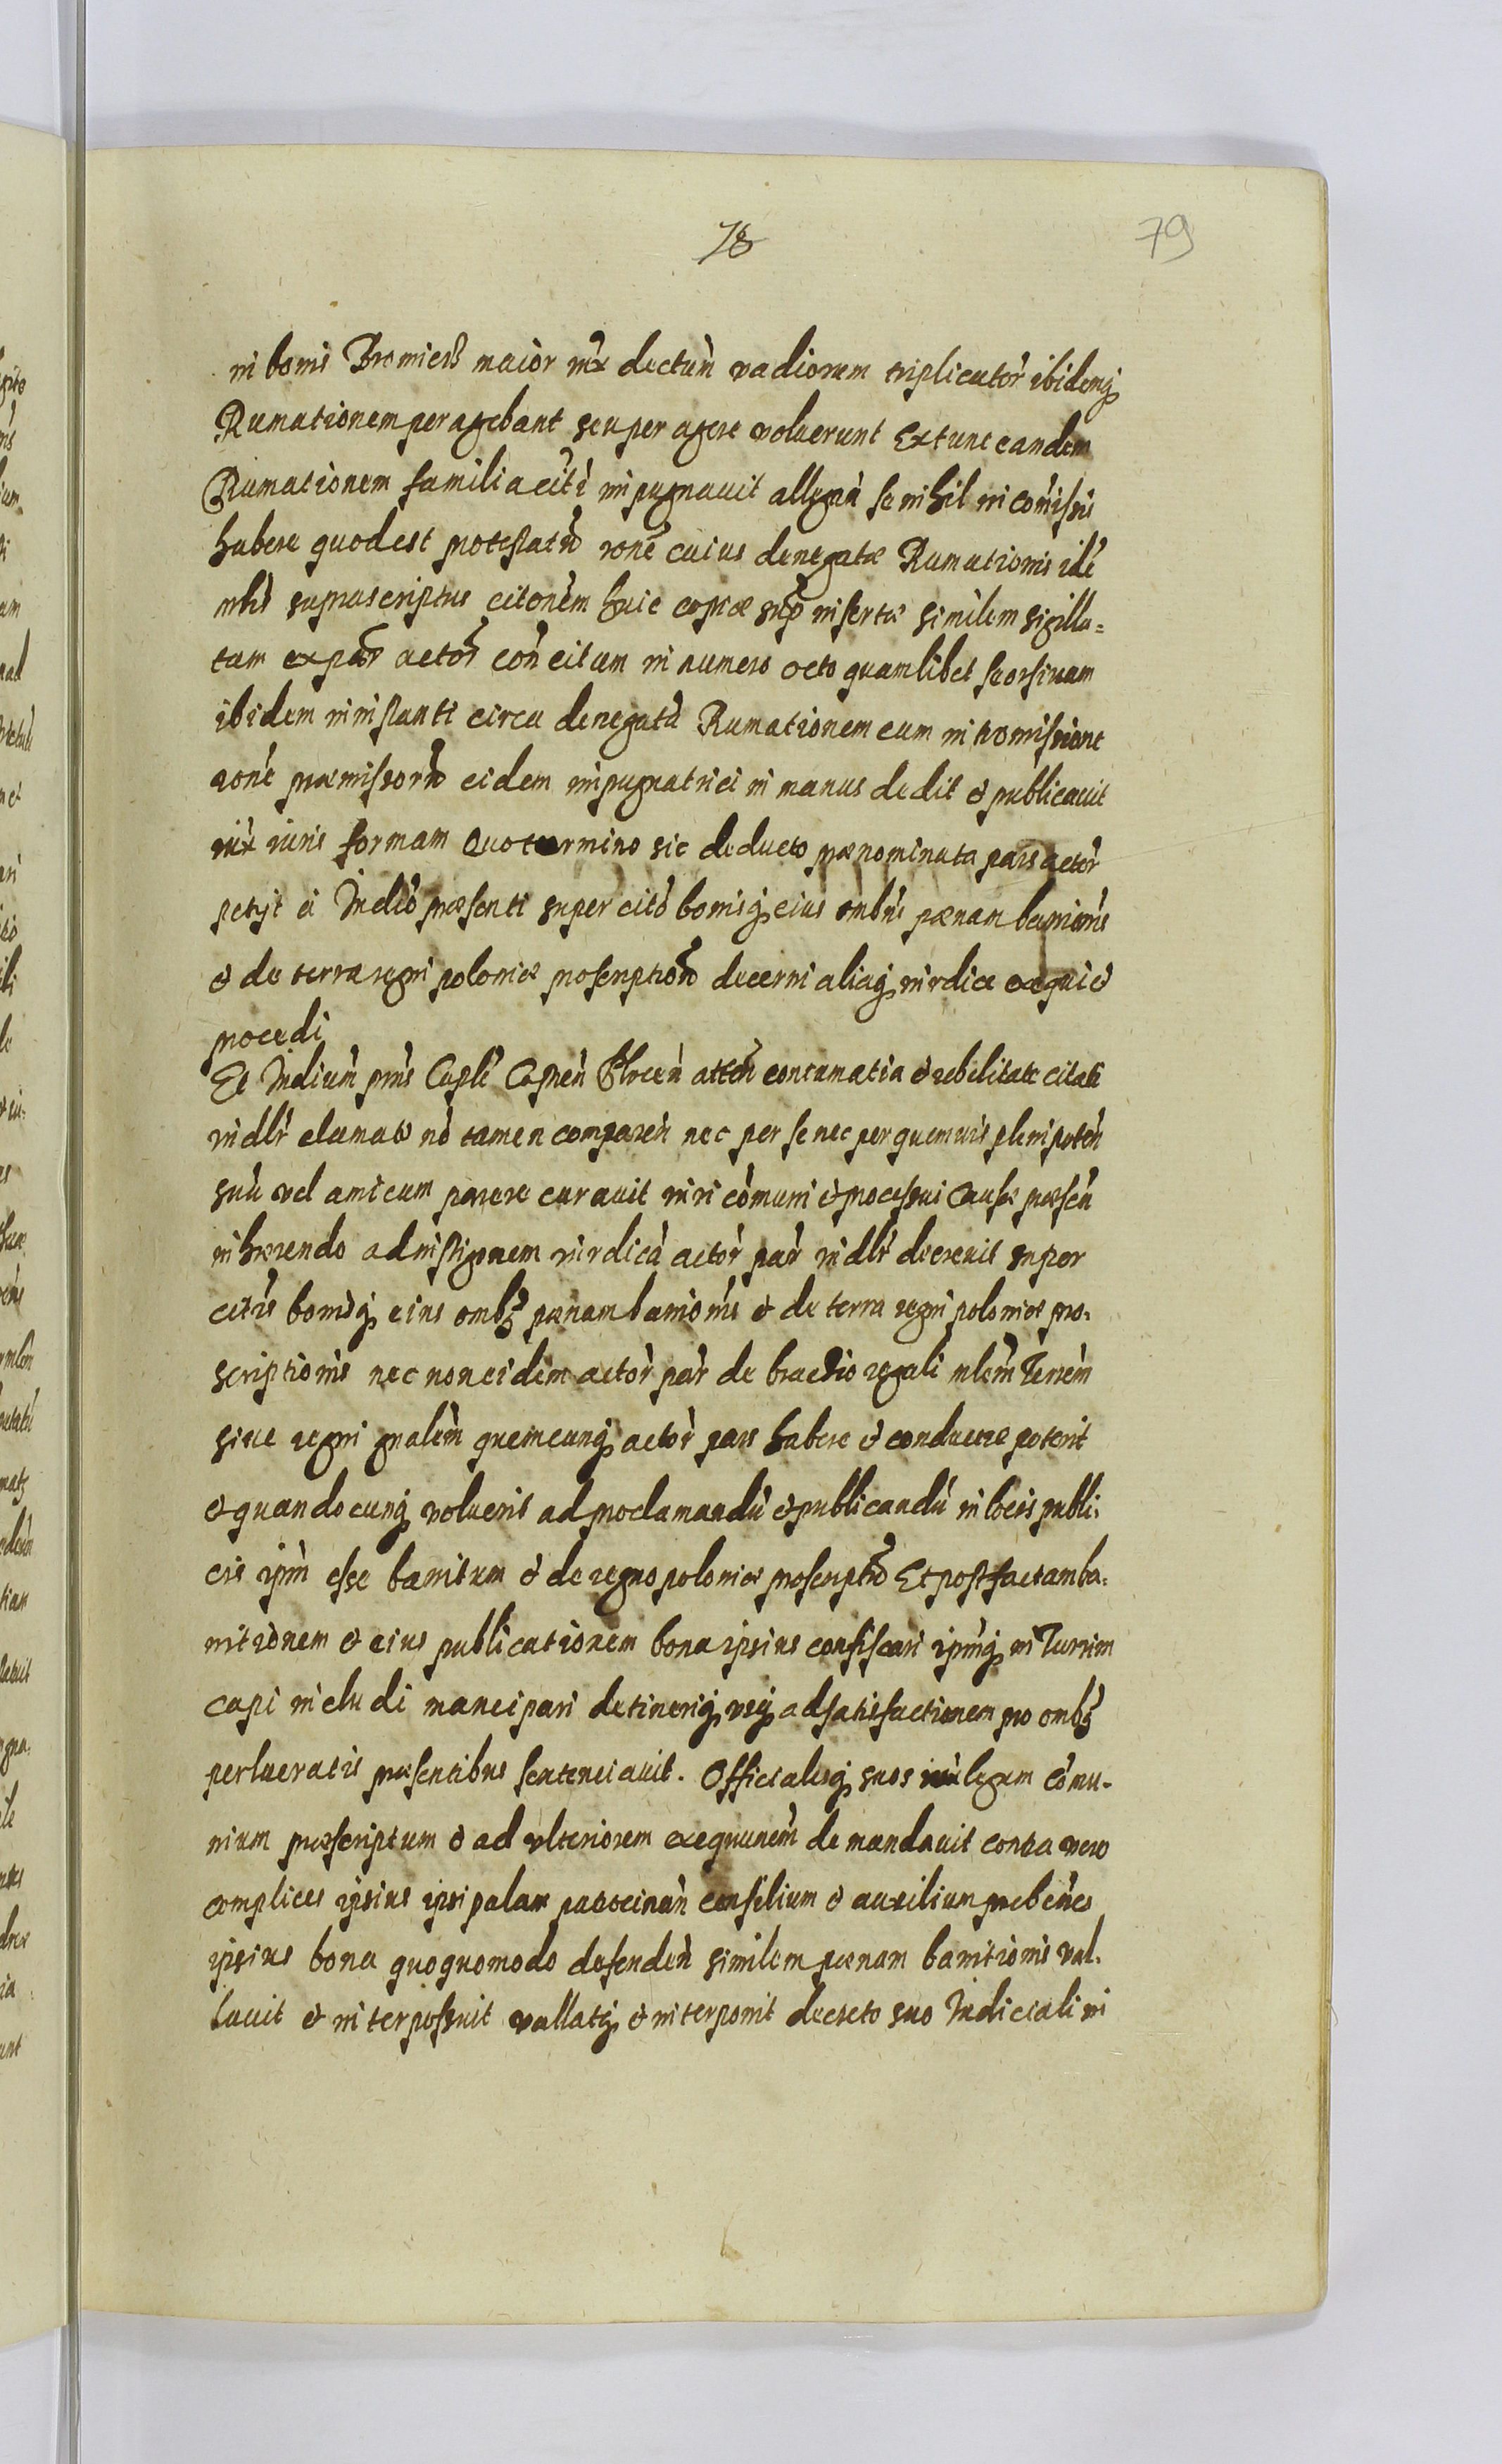 78
79
in bonis Bromierz maior iux dectum vadiorum triplicator ibidemq
Rumationem peragebant seu per agere voluerunt Extunc eandem
Rumationem familia citi impugnavit allegan se nihil in comissis
habere quod est protestatū rone cuius denegatæ Rumationis idē
mlis suprascriptus citonem huic copiæ sup insertæ similem sigilla=
tam ex par actor con citum in numero octo quamlibet seorsivam
ibidem in instanti circa denegatā Rumationem cum intromissione
rone præmissorū eidem impugnatrici in manus dedit & publicavit
iux iuris formam Quo termino sic deducto prænominata pars actor
petijt a Iudio præsenti super cito bonisq eius ombus pænam bannionis
& de terra regni poloniæ proscriptionō decerni aliaq iurdice exequi &
procedi
Et Iudium pris Capli Capnen Plocen atten contumatia & rebilitate citati
iudlr clamato nō tamen comparen nec per se nec per quemvis plenipoten
suū vel amicum parere curavit iuri comuni & processui Causæ præsen
inhærendo ad instigonem iurdicā actor par iudlr decrevit super
citis bonisq eius ombq pænam bannionis & de terra regni poloniæ pro=
scriptionis nec non eidem actor par de brachio regali mlem Terrem
sive regni gnalem quemcunq actor pars habere & conducere poterit
& quandocunq voluerit ad proclamandū & publicandū in locis publi=
cis ipm esse banitum & de regno poloniæ proscriptū Et post factam ba=
nitionem & eius publicationem bona ipsius confiscari ipmq in Turrim
capi includi mancipari detineriq vsq ad satisfactionem pro ombq
perlucratis præsentibus sentenciavit. Officialesq suos iux legum comu=
nium præscriptum & ad vlteriorem exequunem demandavit contra vero
complices ipsius ipsi palam patrocinan consilium & auxilium præbenes
ipsius bona quoquomodo defenden similem pænam banitionis val=
lavit & interpossuit vallatq & interponit decreto suo Iudiciali in